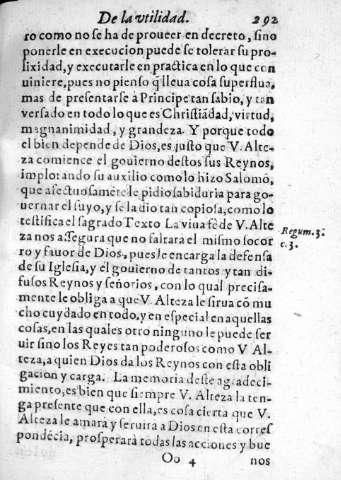 De la vtilidad. 292
ro como no se ha de proueer en decreto, sino
ponerle en execucion puede se tolerar su pro-
lixidad, y executarle en practica en lo que con
uiniere, pues no pienso q̃ lleua cosa superflua,
mas de presentarse à Principe tan sabio, y tan
versado en todo lo que es Christiãdad, virtud,
magnanimidad, y grandeza. Y porque todo
el bien depende de Dios, es justo que V. Alte-
za comience el gouierno destos sus Reynos,
implorando su auxilio como lo hizo Salomõ,
que afectuosamẽte le pidio sabiduria para go-
uernar el suyo, y se la dio tan copiosa, como lo
testifica el sagrado Texto La viua fẽ de V. Alte
za nos assegura que no faltarà el mismo socor
ro y fauor de Dios, pues le encarga la defensa
de su Iglesia, y el gouierno de tantos y tan di-
fusos Reynos y señorios, con lo qual precisa-
mente le obliga a que V. Alteza le sirua cõ mu
cho cuydado en todo, y en especial en aquellas
cosas, en las quales otro ninguno le puede ser
uir sino los Reyes tan poderosos como V Al-
teza, a quien Dios da los Reynos con esta obli
gacion y carga. La memoria deste agradeci-
miento, es bien que siempre V. Alteza la ten-
ga presente que con ella, es cosa cierta que V.
Alteza le amarà y seruira a Dios en esta corres
pondẽcia, prosperarà todas las acciones y bue
Oo 4 nos
Regum. 3.
c. 3.